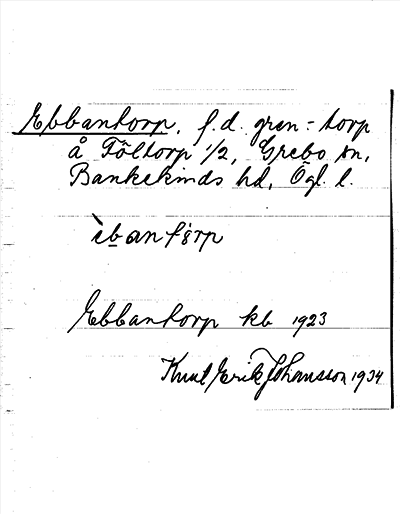 Ebbantorp, f.d. gren-torp
å Föltorp 1/2, Grebo sn,
Bankekinds hd, Ögl. l.
Ebbantorp kb 1923
Knut Erik Johansson 1934